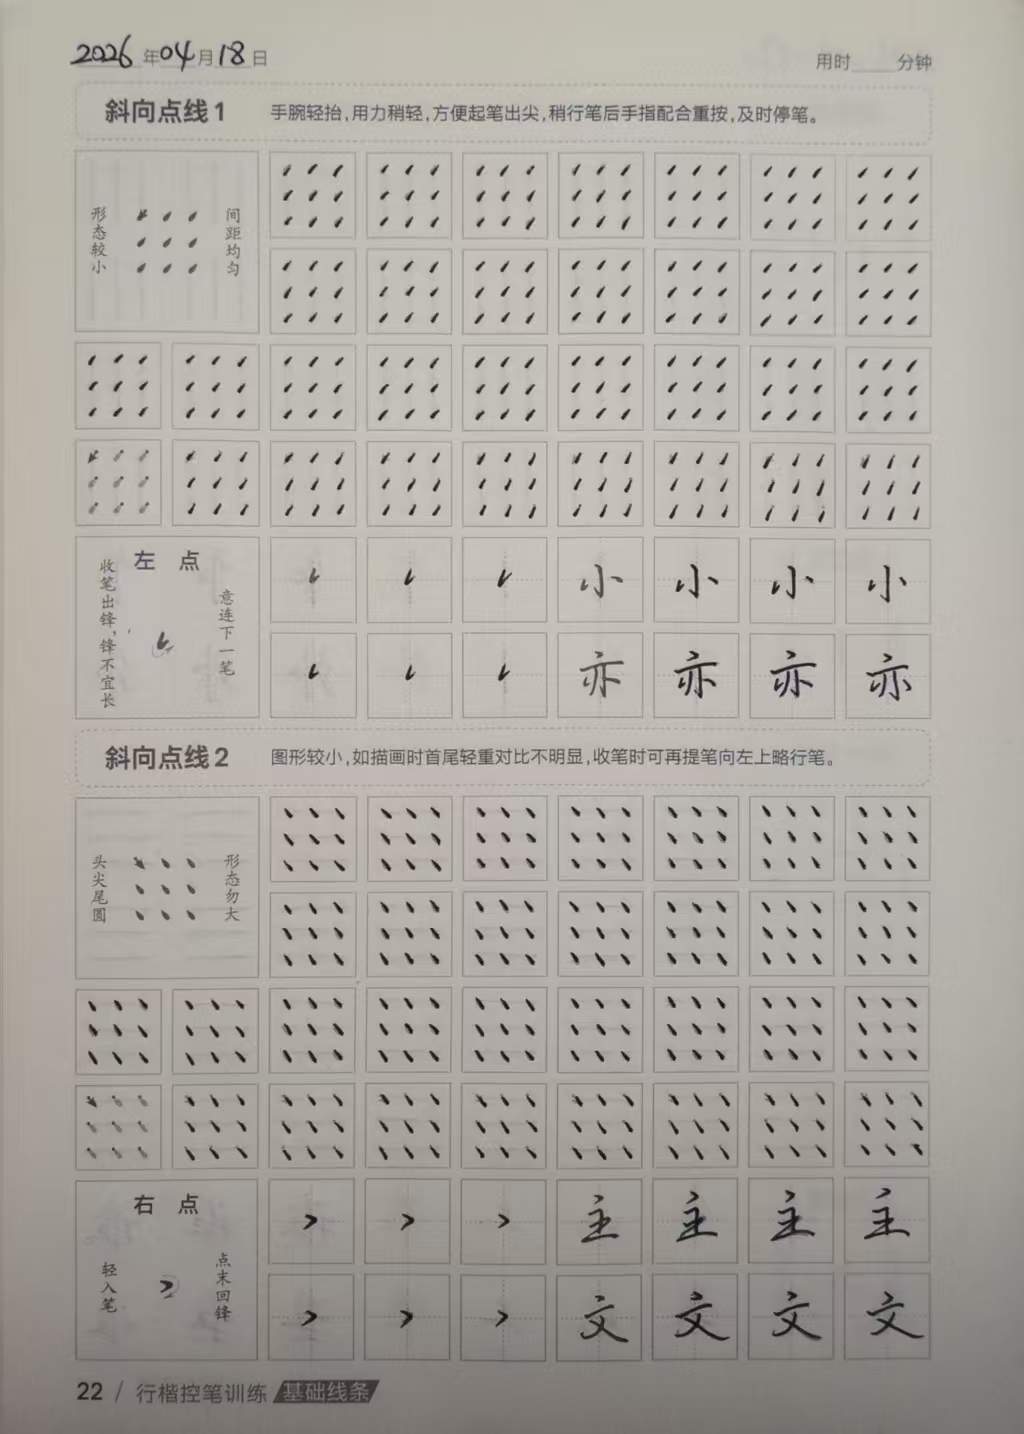 2026年04月18日
用时 分钟
斜向点线1 手腕轻抬,用力稍轻,方便起笔出尖,稍行笔后手指配合重按,及时停笔。
形态较小
间距均匀
左 点
收笔出锋,锋不宜长
意连下一笔
小 小 小 小
亦 亦 亦 亦
斜向点线2 图形较小,如描画时首尾轻重对比不明显,收笔时可再提笔向左上略行笔。
头尖尾圆
形态勿大
右 点
轻入笔
点末回锋
主 主 主 主
文 文 文 文
22 / 行楷控笔训练 基础线条